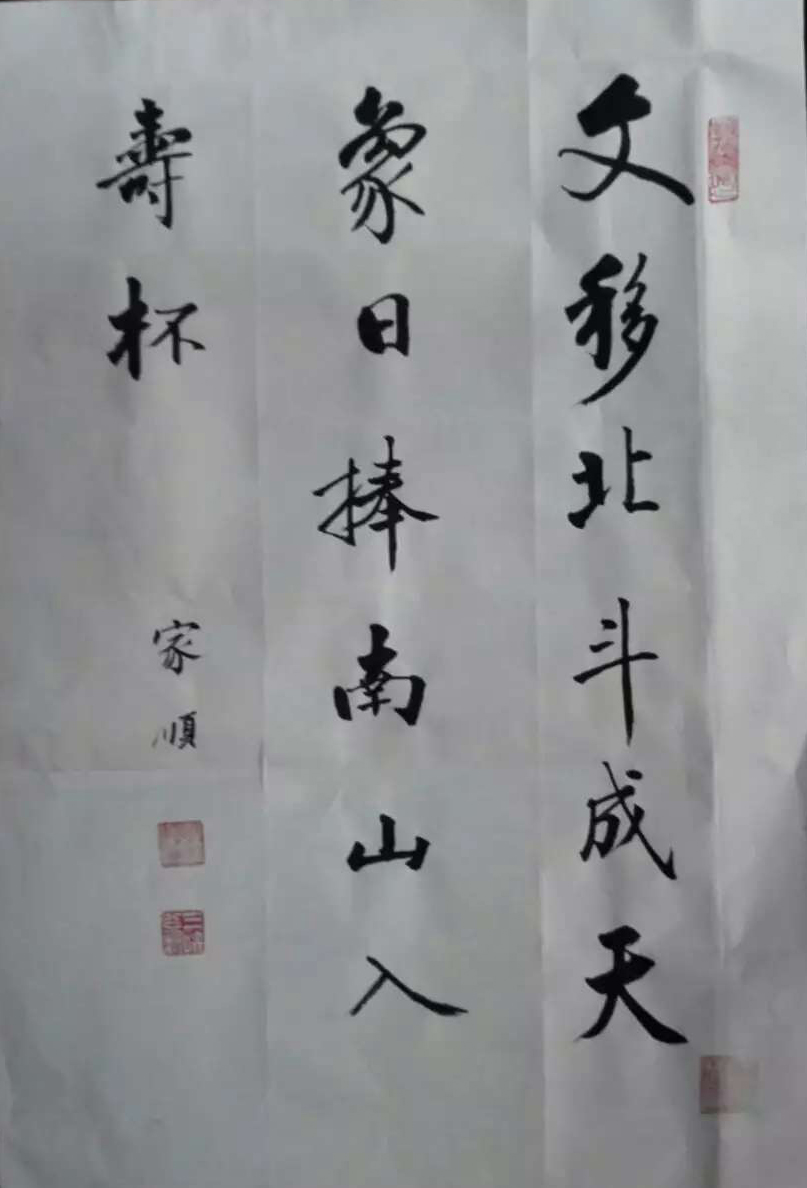 文移北斗成天
象日捧南山入
壽杯
家順